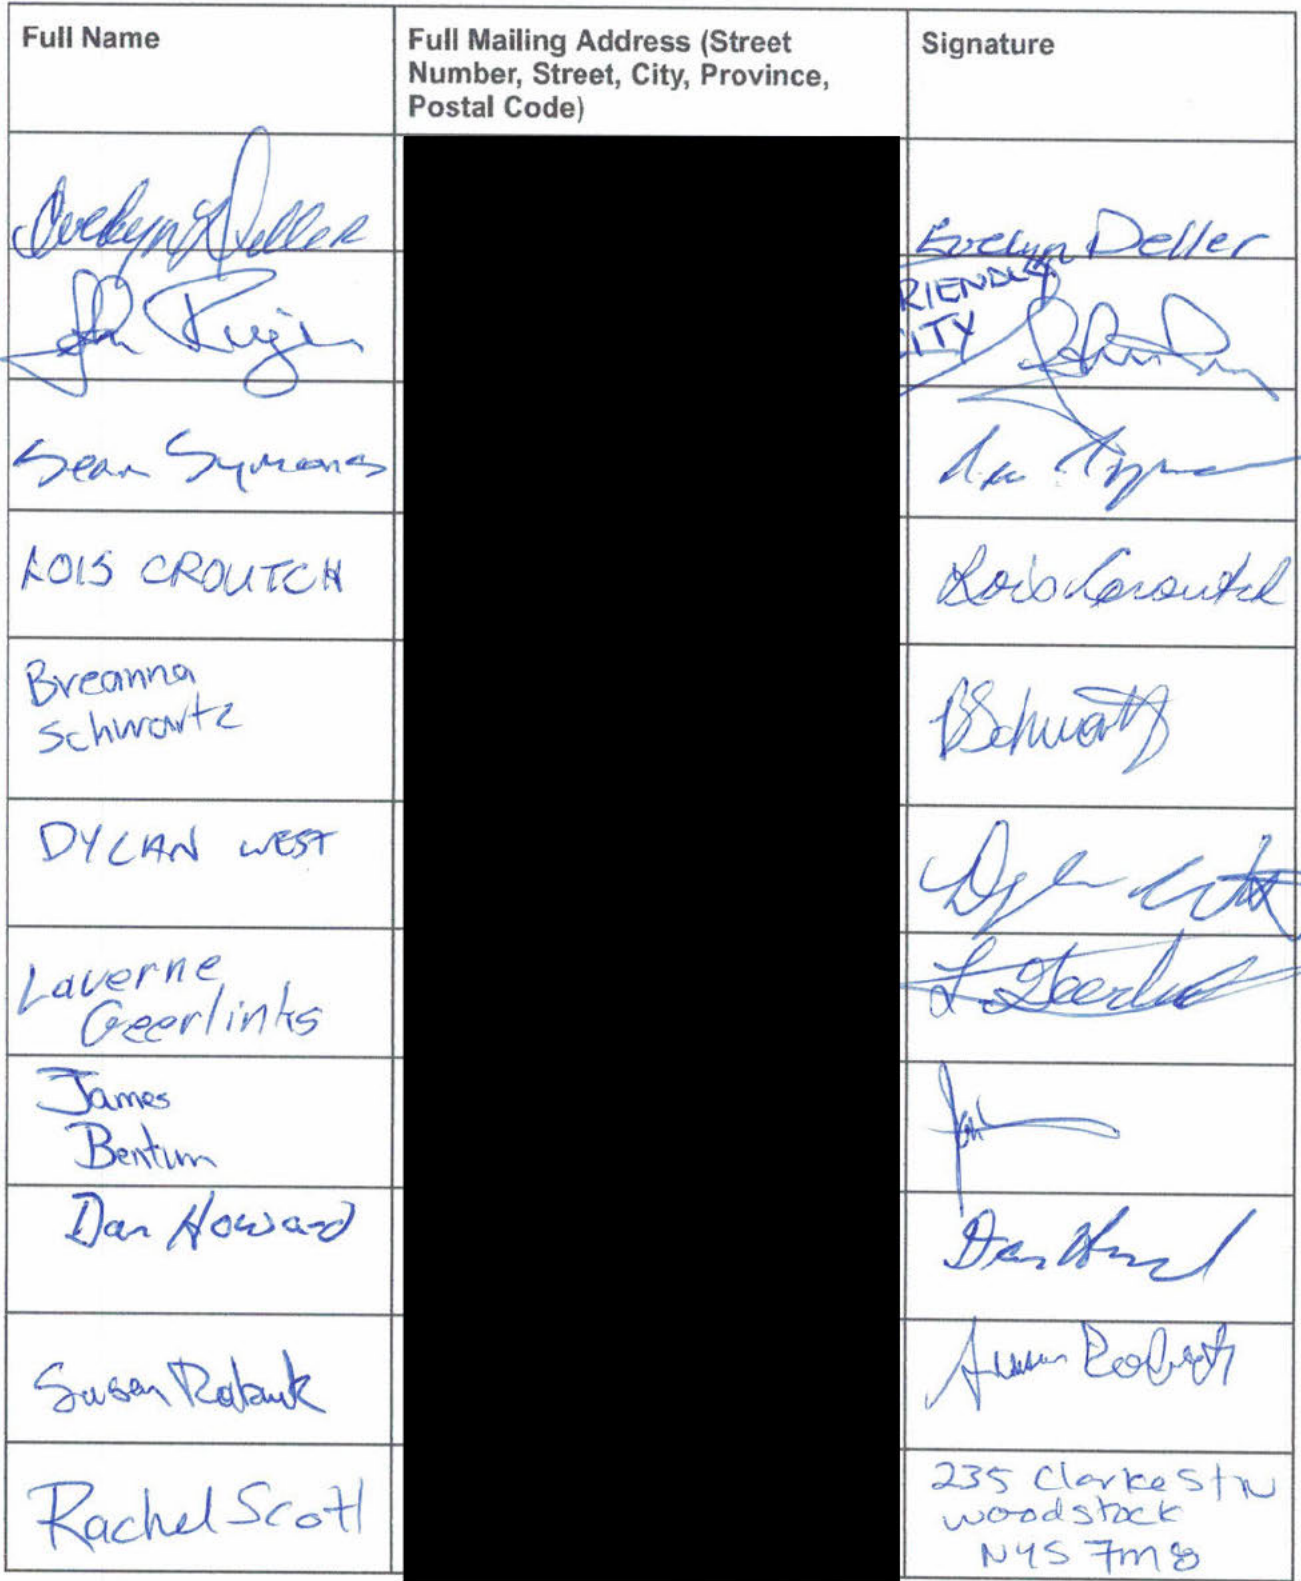 Full Name
Full Mailing Address (Street
Number, Street, City, Province,
Postal Code)
Signature
Evelyn Deller
Evelyn Deller
RIENDLY
ITY
John
Sean Symons
LOIS CROUTCH
Lois Croutch
Breanna
Schwartz
BSchwartz
DYLAN WEST
Dylan West
Laverne
Geerlinks
L. Geerlinks
James
Bentum
Dan Howard
Dan Howard
Susan
Susan
Rachel Scott
235 Clarke St N
woodstock
N4S 7M8